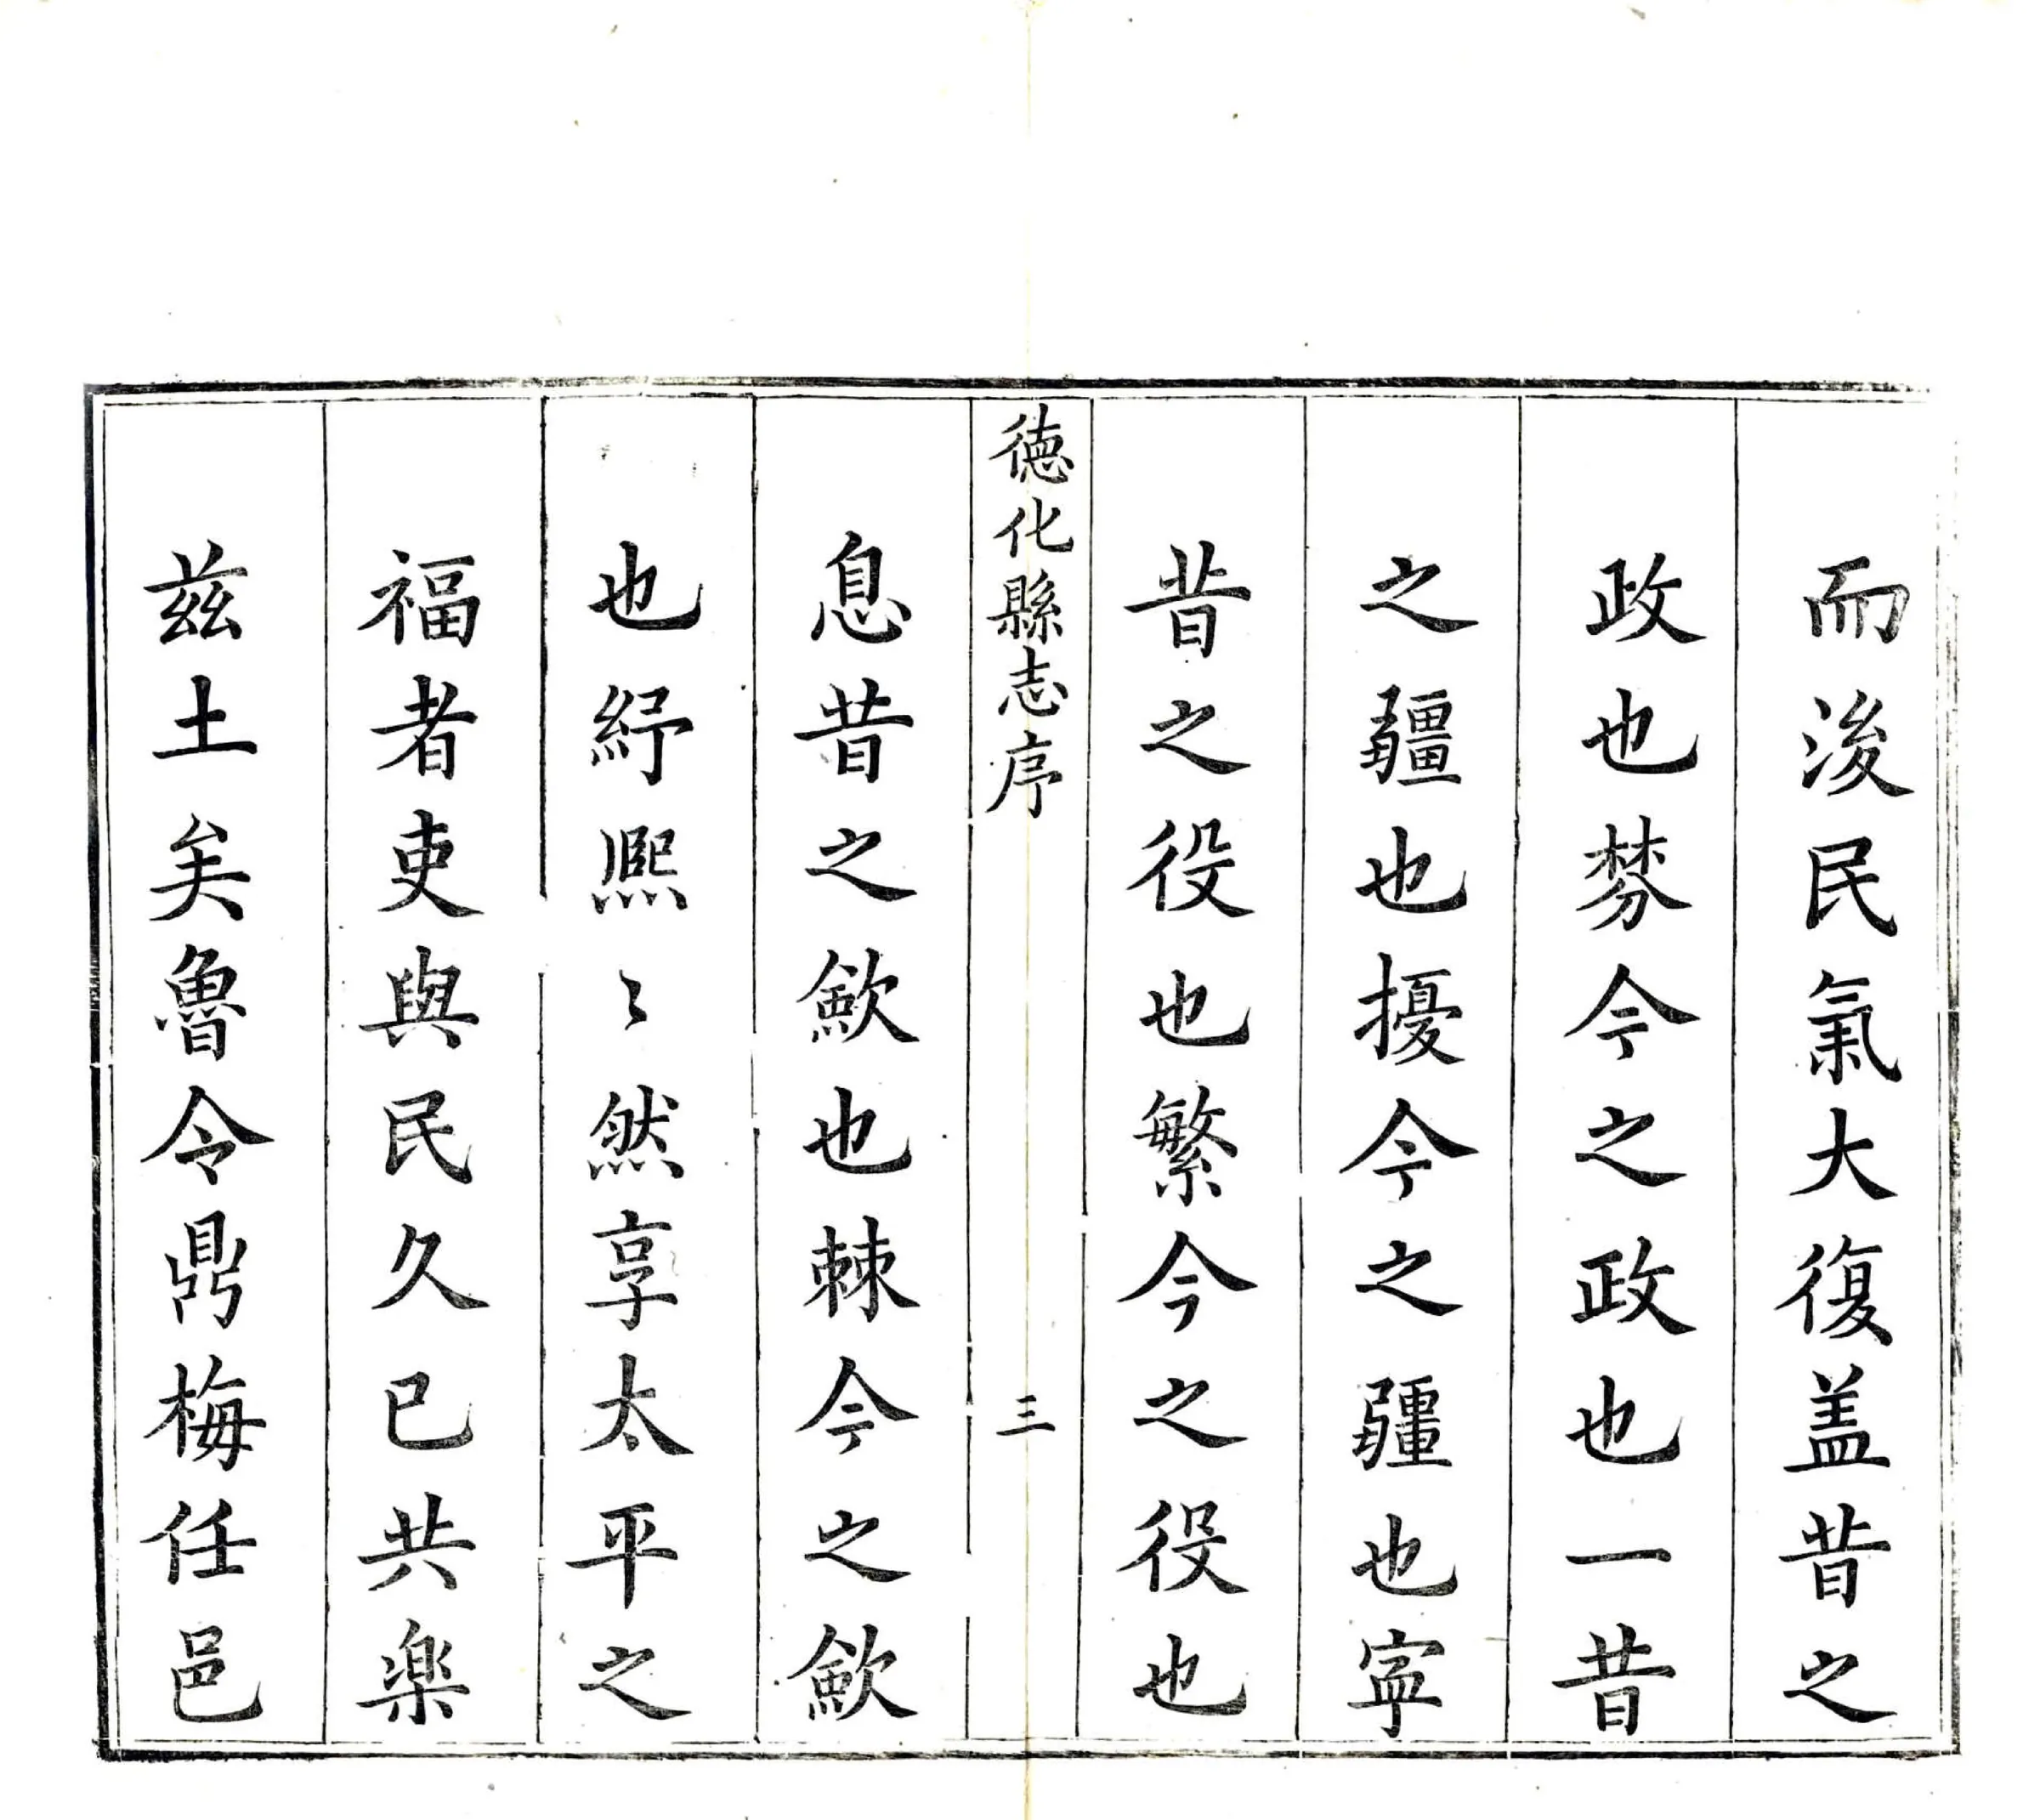 而浚民氣大復盖昔之
政也棼今之政也一昔
之疆也擾今之疆也寍
昔之役也繁今之役也
德化縣志序
三
息昔之歛也棘今之歛
也紓熙〻然享太平之
福者吏與民久已共楽
兹土矣魯令鼎梅任邑